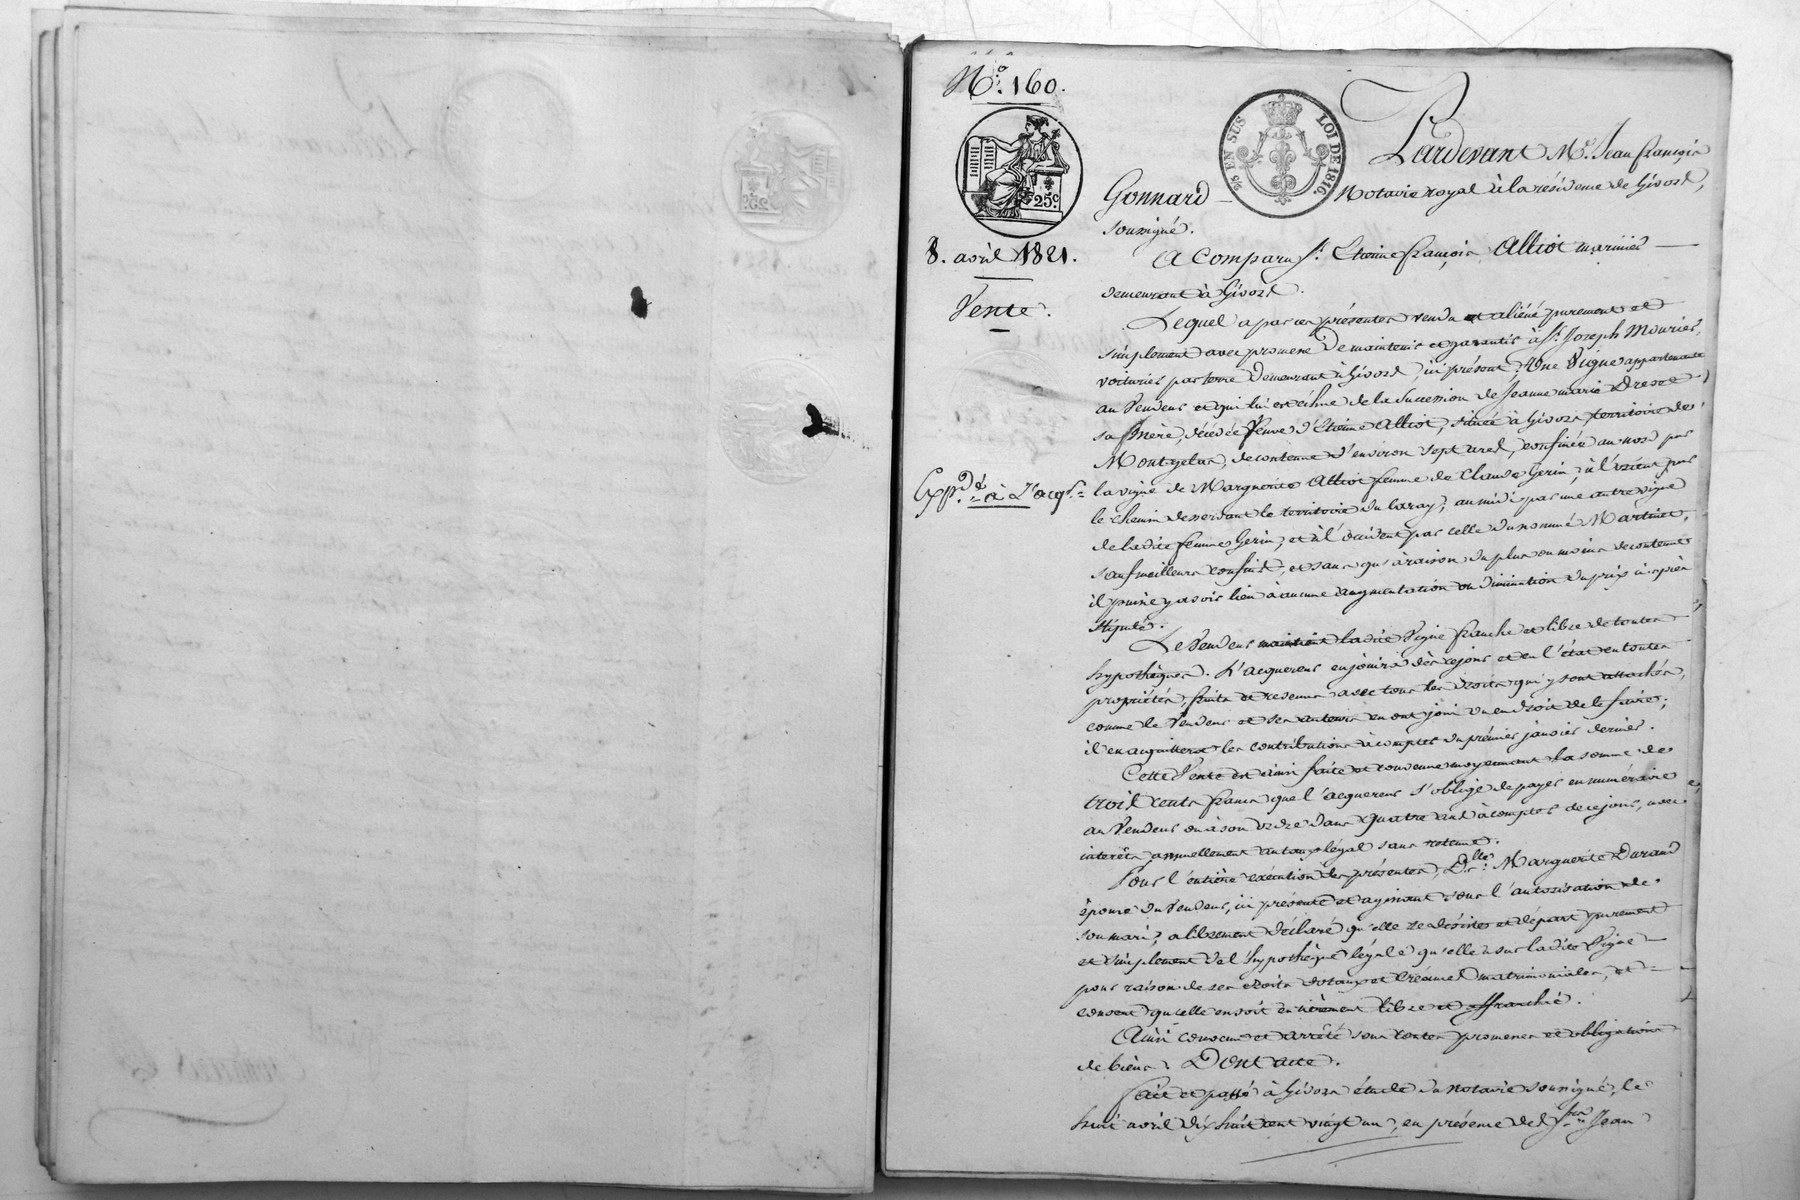 Nº. 160.
5/5 EN SUS LOI DE 1816.
25c
8. avril 1821.
Vente.
Expéd. à L'acqr.
Pardevant Me. Jean françois
Gonnard Notaire royal à la résidence de Givors,
soussigné.
A Comparu Sr. Etienne françois Alliot marinier
demeurant à Givors.
Lequel a par ces présentes vendu et aliéné purement et
simplement avec promesse de maintenir et garantir à Sr. Joseph Mourier,
voiturier par terre demeurant à Givors, ici présent, Une Vigne appartenante
au Vendeur et qui lui est échue de la Succession de Jeanne marie Drevet
sa Mère, décédée Veuve d'Etienne Alliot, située à Givors territoire de
Montgelas, de contenue d'environ sept ares, confinée au nord par
la vigne de Marguerite Alliot femme de Claude Gerin, à l'orient par
le chemin desservant le territoire du laray, au midi par une autre vigne
de ladite femme Gerin, et à l'occident par celle du nommé Martinet,
sauf meilleurs confins, et sans qu'à raison du plus ou moins de contenue
il puisse y avoir lieu à aucune augmentation ou diminution du prix ci-après
stipulé.
Le Vendeur maintient ladite Vigne franche et libre de toutes
hypothèques. L'acquereur en jouira dès ce jour et en l'état en toutes
propriétés, fruits et revenus avec tous les droits qui y sont attachés,
comme le Vendeur et ses auteurs en ont joui ou eu droit de le faire;
il en acquittera les contributions à compter du premier janvier dernier.
Cette Vente est ainsi faite et convenue moyennant la somme de
trois cents francs que l'acquereur s'oblige de payer en numéraire
au Vendeur ou à son ordre dans quatre ans à compter de ce jour, avec
intérêts annuellement au taux légal sans retenue.
Pour l'entière exécution des présentes, Dlle. Marguerite Durand
épouse du Vendeur, ici présente et agissant sous l'autorisation de
son mari, a librement déclaré qu'elle se désiste et départ purement
et simplement de l'hypothèque légale qu'elle a sur ladite Vigne
pour raison de ses droits dotaux et créances matrimoniales, et
consent qu'elle en soit entièrement libre et affranchie.
Ainsi convenu et arrêté sous toutes promesses et obligations
de biens. Dont acte.
Fait et passé à Givors étude du notaire soussigné, le
huit avril dix huit cent vingt un, en présence des Srs. Jean